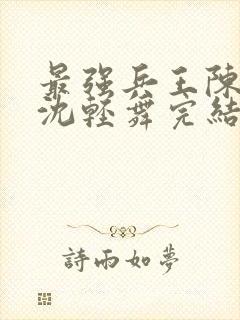 最强兵王陳
沈輕舞完結
詩雨如夢